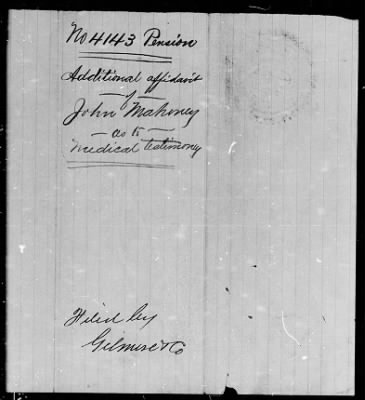 No 4143 Pension
Additional affidavit
of
John Mahoney
as to
medical testimony
Filed by
Gilmore & Co